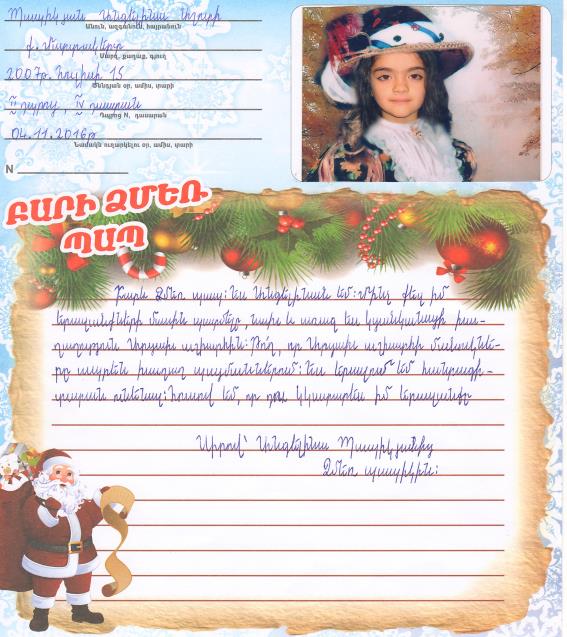 Պապիկյան Անգելինա Աշոտի
Անուն, ազգանուն, հայրանուն
ք. Մարտակերտ
Մարզ, քաղաք, գյուղ
2007թ. հուլիսի 15
Ծննդյան օր, ամիս, տարի
դպրոց, IV դասարան
Դպրոց N, դասարան
04.11.2016թ
Նամակն ուղարկելու օր, ամիս, տարի
N
ԲԱՐԻ ՁՄԵՌ
ՊԱՊ
Բարև Ձմեռ պապ: Ես Անգելինան եմ: Մինչ քեզ իմ
երազանքների մասին պատմելը, նախ և առաջ ես կցանկանայի խա-
ղաղություն ամբողջ աշխարհին: Թող, որ ամբողջ աշխարհի մանուկնե-
րը ապրեն խաղաղ պայմաններում: Ես երազում եմ համակարգի-
ունենալ: Հուսով եմ, որ դու կկատարես իմ երազանքը
Սիրով՝ Անգելինա Պապիկյանից
Ձմեռ պապիկին: